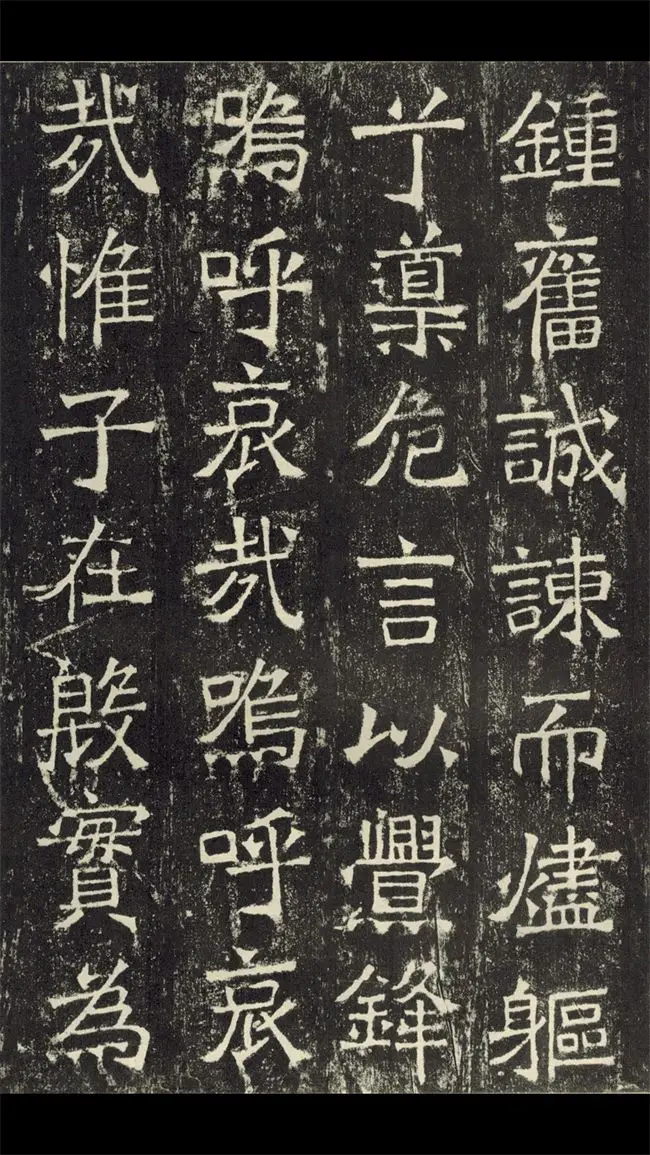 鍾舊誠諫而燼軀
丁導危言以舋鋒
嗚呼哀哉嗚呼哀
哉惟子在殷實為